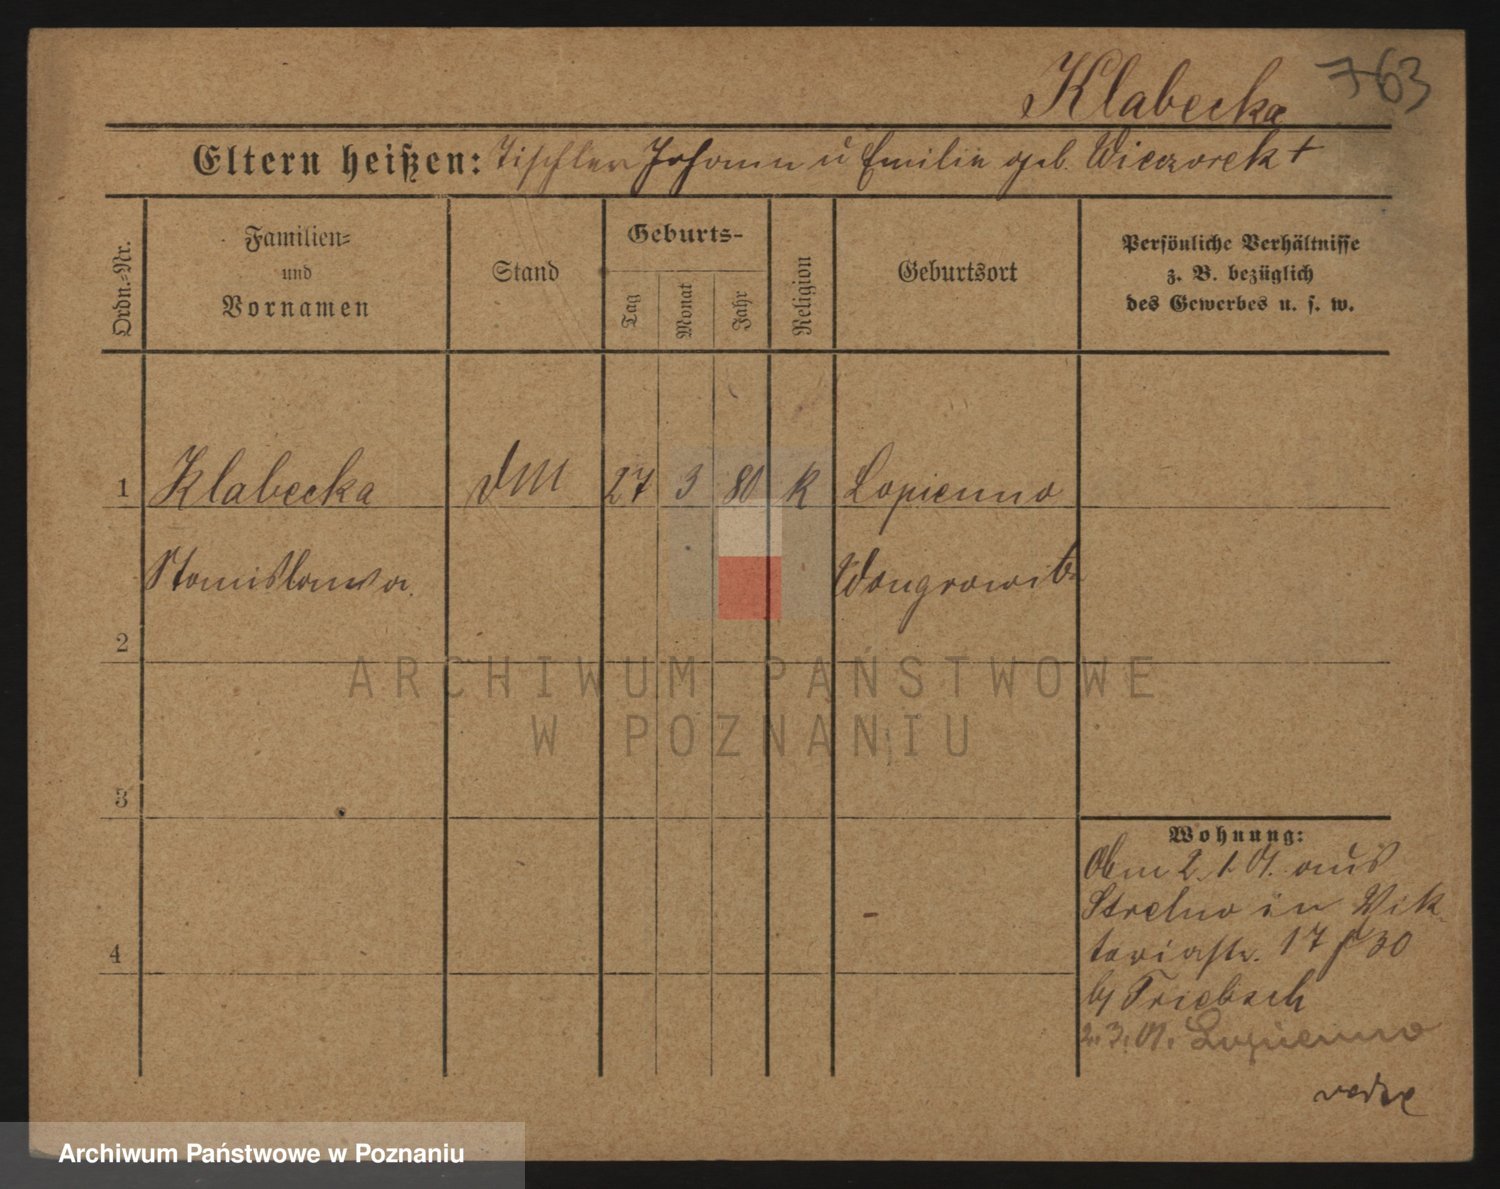 Klabecka 763
Eltern heißen: Tischler Johann u Emilie geb. Wieczorek +
Ordn.-Nr.
Familien-
und
Vornamen
Stand
Geburts-
Tag
Monat
Jahr
Religion
Geburtsort
Persönliche Verhältnisse
z. B. bezüglich
des Gewerbes u. s. w.
1 Klabecka DM 27 3 80 K Lopienno
Stanislawa Wongrowitz
2
ARCHIWUM PAŃSTWOWE
W POZNANIU
3
Wohnung:
2.1. 01. aus
Strelno in Vik-
toriastr. 17 30
b/ Triebsch
4
2.3.01. Lopienno
Archiwum Państwowe w Poznaniu